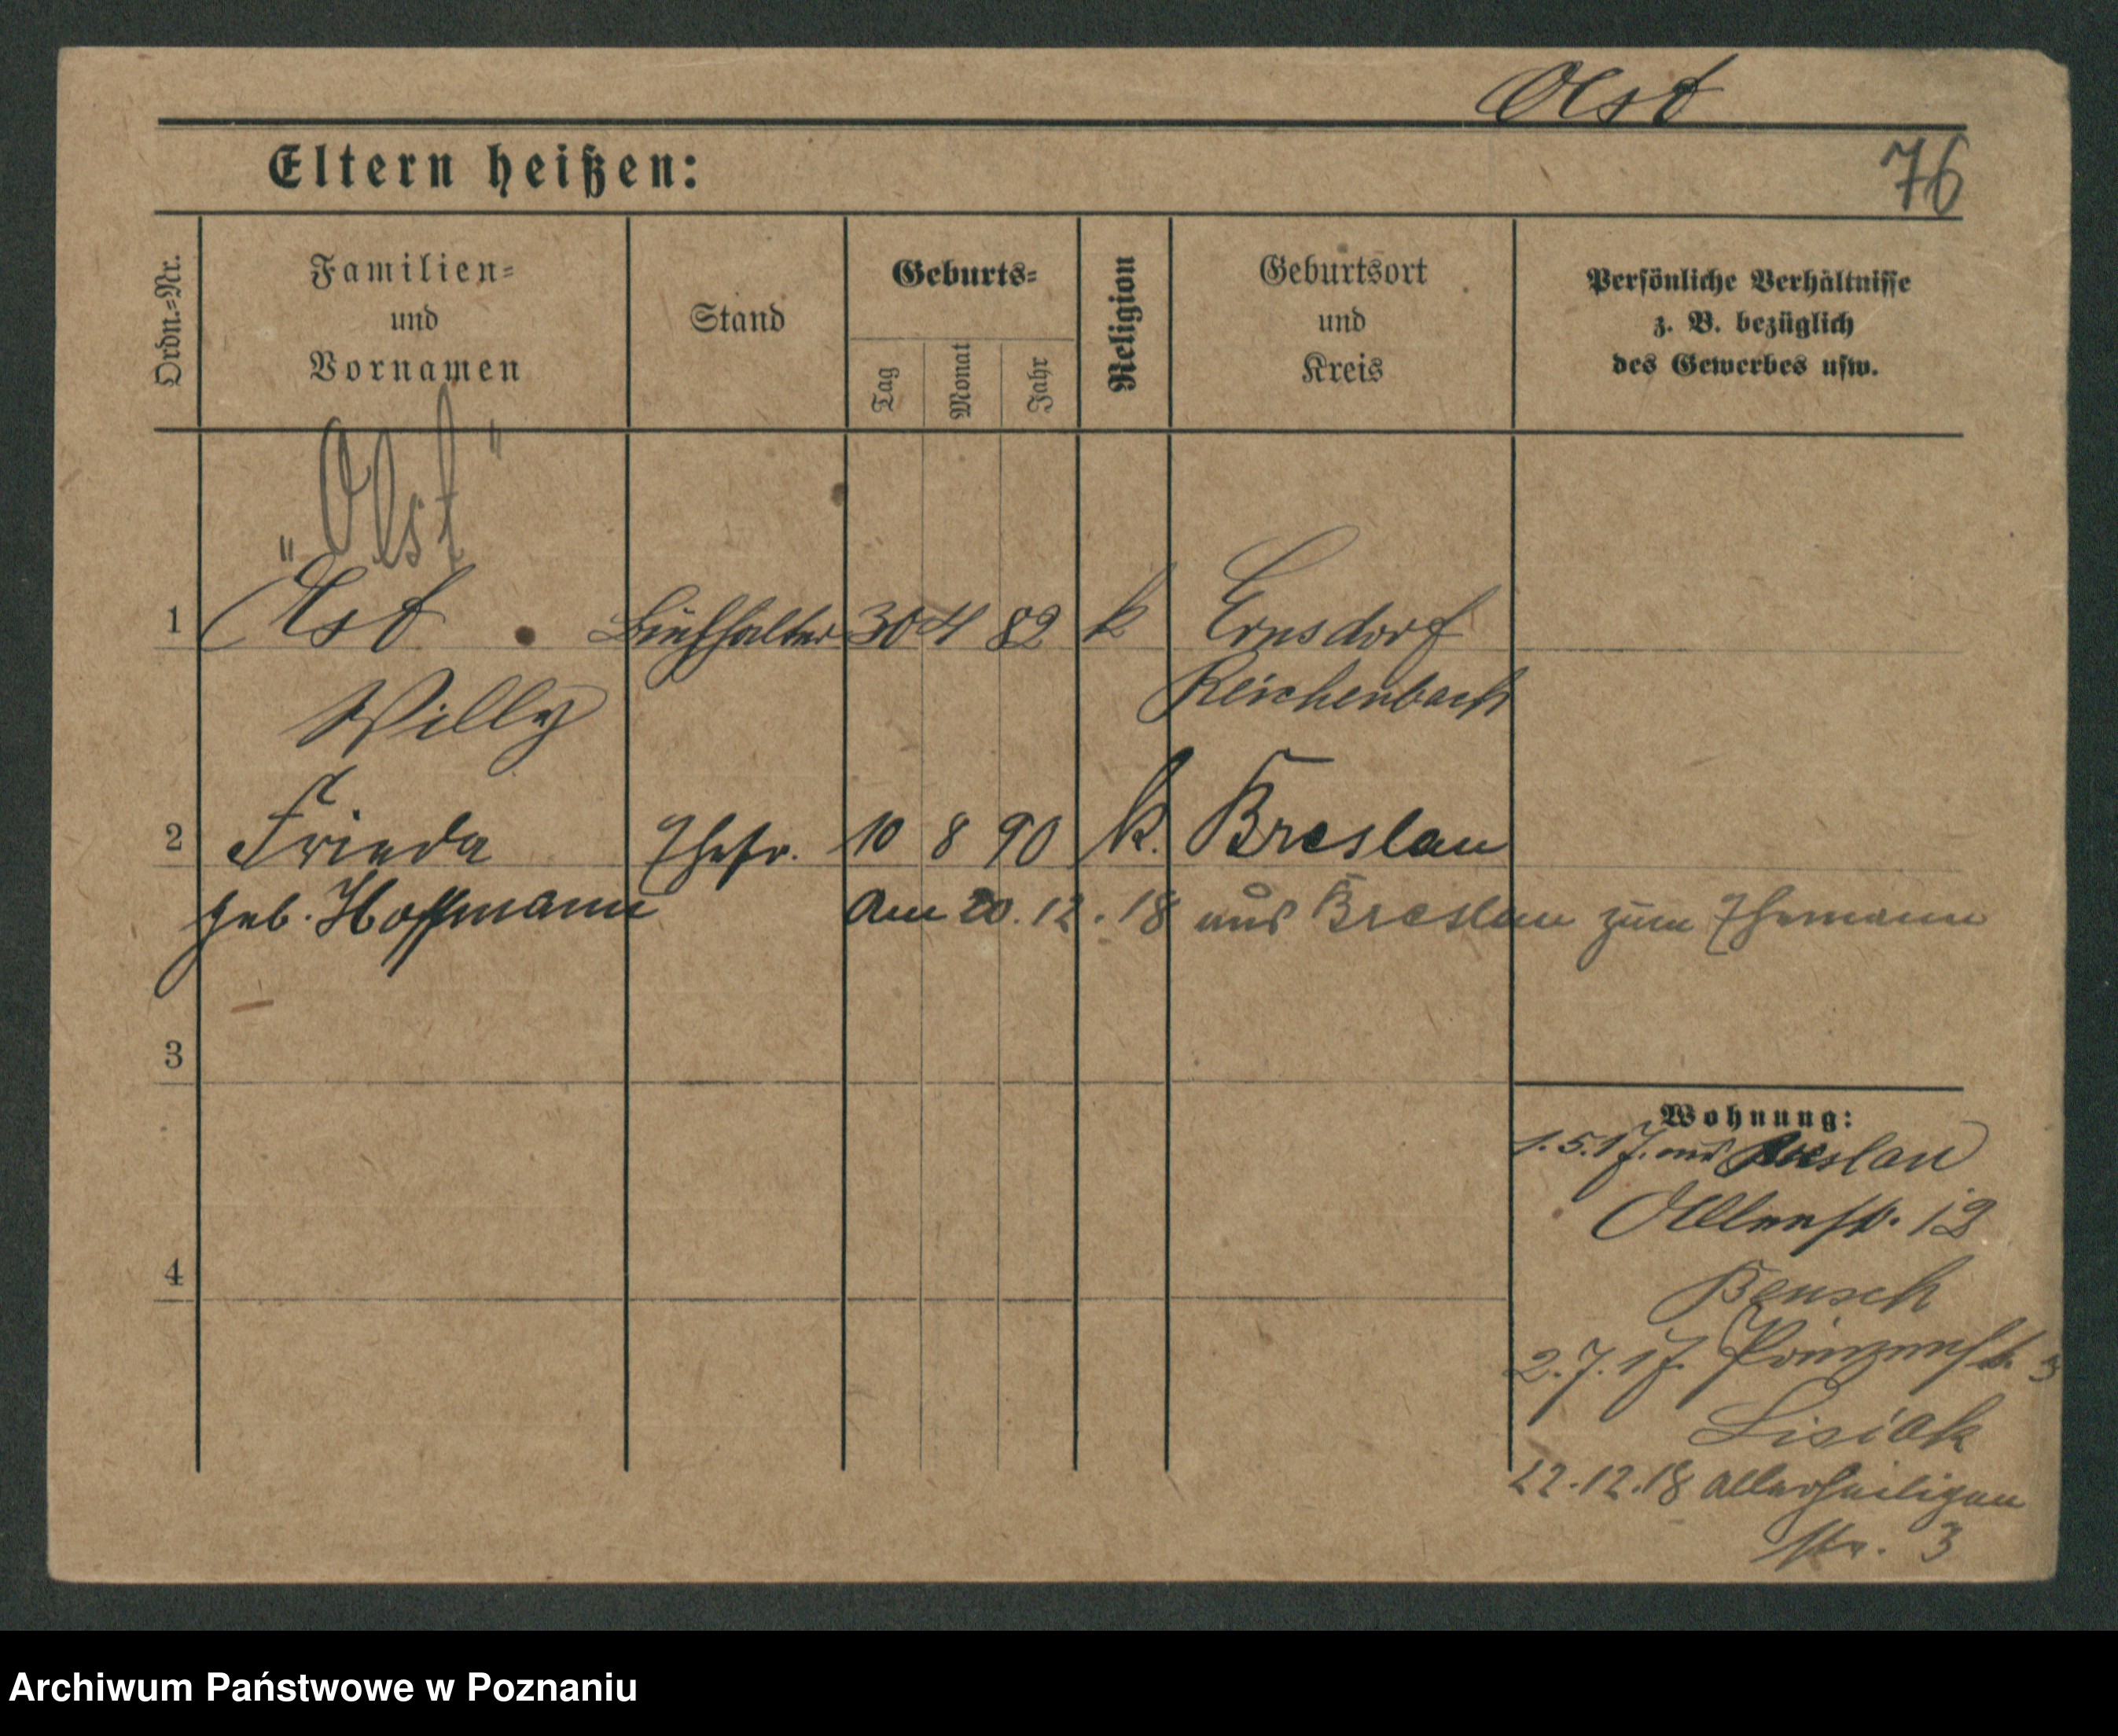 Olst
76
Eltern heißen:
Ordn.-Nr.
Familien-
und
Vornamen
Stand
Geburts-
Tag
Monat
Jahr
Religion
Geburtsort
und
Kreis
Persönliche Verhältnisse
z. B. bezüglich
des Gewerbes usw.
"Olst"
1 Olst Buchhalter 30 4 82 k Ernsdorf
Willy Reichenbach
2 Frieda Ehefr. 10 8 90 k. Breslau
geb. Hoffmann Am 20.12.18 aus Breslau zum Ehemann
3
Wohnung:
1.5.17. aus Breslau
12
4
Bensch
2.7.17. Prinzenstr. 3
Lisiak
22.12.18 Allerheiligen
str. 3
Archiwum Państwowe w Poznaniu